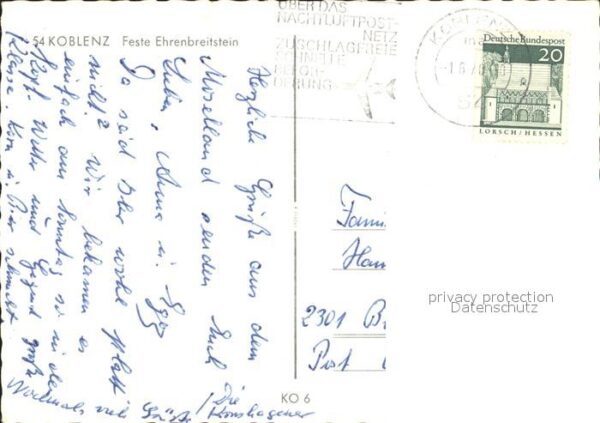 54 KOBLENZ Feste Ehrenbreitstein
ÜBER DAS
NACHTLUFTPOST-
NETZ
ZUSCHLAGFREIE
SCHNELLE
BEFÖR-
DERUNG
KOBLENZ
Deutsche Bundespost
20
LORSCH/HESSEN
Herzliche Grüße aus dem
Moselland senden Euch
Da seid Ihr wohl platt
nicht? Wir bekamen es
einfach am Sonntag so in den
Kopf. Wetter und Gegend große
Klasse.
Nochmals viele Grüße
Die
Kronshagener
Fami
Han
2301 B
Post
privacy protection
Datenschutz
KO 6